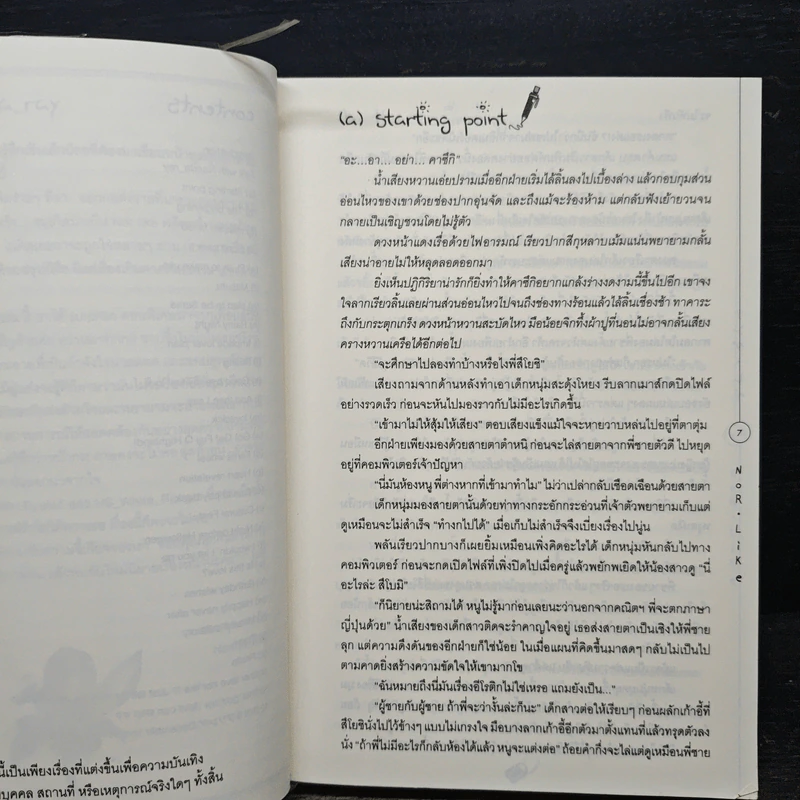 contents
นี้เป็นเพียงเรื่องที่แต่งขึ้นเพื่อความบันเทิง
บุคคล สถานที่ หรือเหตุการณ์จริงใดๆ ทั้งสิ้น
(a) starting point
“อะ...อา... อย่า... คาซึกิ”
น้ำเสียงหวานเอ่ยปรามเมื่ออีกฝ่ายเริ่มไล้ลิ้นลงไปเบื้องล่าง แล้วกอบกุมส่วน
อ่อนไหวของเขาด้วยช่องปากอุ่นจัด และถึงแม้จะร้องห้าม แต่กลับฟังเย้ายวนจน
กลายเป็นเชิญชวนโดยไม่รู้ตัว
ดวงหน้าแดงเรื่อด้วยไฟอารมณ์ เรียวปากสีกุหลาบเม้มแน่นพยายามกลั้น
เสียงน่าอายไม่ให้หลุดลอดออกมา
ยิ่งเห็นปฏิกิริยาน่ารักก็ยิ่งทำให้คาซึกิอยากแกล้งร่างงดงามนี้ขึ้นไปอีก เขาจง
ใจลากเรียวลิ้นเลยผ่านส่วนอ่อนไหวไปจนถึงช่องทางร้อนแล้วไล้ลิ้นเชื่องช้า ทาคาระ
ถึงกับกระตุกเกร็ง ดวงหน้าหวานสะบัดไหว มือน้อยจิกทึ้งผ้าปูที่นอนไม่อาจกลั้นเสียง
ครางหวานเครือได้อีกต่อไป
“จะศึกษาไปลองทำบ้างหรือไงพี่สึโยชิ”
เสียงถามจากด้านหลังทำเอาเด็กหนุ่มสะดุ้งโหยง รีบลากเมาส์กดปิดไฟล์
อย่างรวดเร็ว ก่อนจะหันไปมองราวกับไม่มีอะไรเกิดขึ้น
“เข้ามาไม่ให้สุ้มให้เสียง” ตอบเสียงแข็งแม้ใจจะหายวาบหล่นไปอยู่ที่ตาตุ่ม
อีกฝ่ายเพียงมองด้วยสายตาตำหนิ ก่อนจะไล่สายตาจากพี่ชายตัวดี ไปหยุด
อยู่ที่คอมพิวเตอร์เจ้าปัญหา
“นี่มันห้องหนู พี่ต่างหากที่เข้ามาทำไม” ไม่ว่าเปล่ากลับเชือดเฉือนด้วยสายตา
เด็กหนุ่มมองสายตานั้นด้วยท่าทางกระอักกระอ่วนที่เจ้าตัวพยายามเก็บแต่
ดูเหมือนจะไม่สำเร็จ “ทำงกไปได้” เมื่อเก็บไม่สำเร็จจึงเบี่ยงเรื่องไปนู่น
พลันเรียวปากบางก็เผยยิ้มเหมือนเพิ่งคิดอะไรได้ เด็กหนุ่มหันกลับไปทาง
คอมพิวเตอร์ ก่อนจะกดเปิดไฟล์ที่เพิ่งปิดไปเมื่อครู่แล้วพยักพเยิดให้น้องสาวดู “นี่
อะไรล่ะ สึโบมิ”
“ก็นิยายน่ะสิถามได้ หนูไม่รู้มาก่อนเลยนะว่านอกจากคณิตฯ พี่จะตกภาษา
ญี่ปุ่นด้วย” น้ำเสียงของเด็กสาวติดจะรำคาญใจอยู่ เธอส่งสายตาเป็นเชิงให้พี่ชาย
ลุก แต่ความดึงดันของอีกฝ่ายก็ใช่น้อย ในเมื่อแผนที่คิดขึ้นมาสดๆ กลับไม่เป็นไป
ตามคาดยิ่งสร้างความขัดใจให้เขามากโข
“ฉันหมายถึงนี่มันเรื่องอีโรติกไม่ใช่เหรอ แถมยังเป็น...”
“ผู้ชายกับผู้ชาย ถ้าพี่จะว่างั้นล่ะก็นะ” เด็กสาวต่อให้เรียบๆ ก่อนผลักเก้าอี้ที่
สึโยชินั่งไปไว้ข้างๆ แบบไม่เกรงใจ มือบางลากเก้าอี้อีกตัวมาตั้งแทนที่แล้วทรุดตัวลง
นั่ง “ถ้าพี่ไม่มีอะไรก็กลับห้องได้แล้ว หนูจะแต่งต่อ” ถ้อยคำกึ่งจะไล่แต่ดูเหมือนพี่ชาย
7
NOR・Like